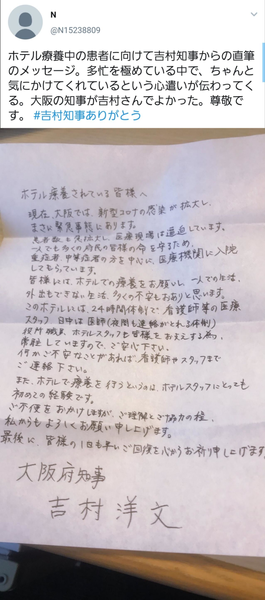 N
@N15238809
ホテル療養中の患者に向けて吉村知事からの直筆
のメッセージ。多忙を極めている中で、ちゃんと
気にかけてくれているという心遣いが伝わってく
る。大阪の知事が吉村さんでよかった。尊敬で
す。 #吉村知事ありがとう
ホテル療養されている皆様へ
現在、大阪では、新型コロナの感染が拡大し、
まさに緊急事態にあります。
も拡大し、医療現場は逼迫しています。
一人でも多くの府民の皆様の命を守るため、
重症者、中等症者の方を中心に、医療機関に入院
してもらっています。
皆様には、ホテルでの療養をお願いし、一人での生活、
外出もできない生活、多くの不安もおありと思います。
このホテルには、24時間体制で、看護師等の医療
スタッフ、日中は医師(夜間も連絡がとれる体制)
役所職員、ホテルスタッフも皆様をお支えする為、
常駐していますので、ご安心下さい。
何かご不安なことがあれば、看護師やスタッフまで
ご連絡下さい。
また、ホテルで療養を行うというのは、ホテルスタッフにとっても
初めての経験です。
ご不便をおかけしますが、ご理解とご協力の程、
私からもよろしくお願い申し上げます。
最後に、皆様の1日も早いご回復を心からお祈り申し上げます。
大阪府知事
吉村洋文